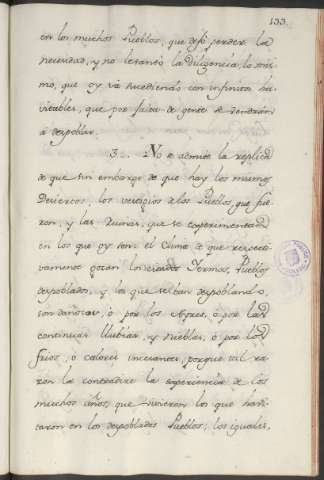 133.
en los muchos Pueblos, que dejó perder la
necesidad, y no levantó la Diligencia, lo mis
mo, que oy va sucediendo con infinitos ha
vitables, que por falta de gente se vendràn
à despoblar.
3. No se admite la replica
de que sin embargo de que hay los mismos
Desiercos, los vestigios de los Pueblos que fue
ron, y las Ruinas, que se experimentan
en los que oy son: el Clima de que respecti
vamente gozan los citados Termos, Pueblos
despoblados, y los que se van despoblando,
son dañosas, ò por los Ayres, ò por las
continuas llubias, y Nieblas, ò por los
frios, ò calores incesantes, porque tal ra
zon la contradice la experiencia de los
muchos años, que vivieron los que havi
taron en los despoblados Pueblos, los iguales,